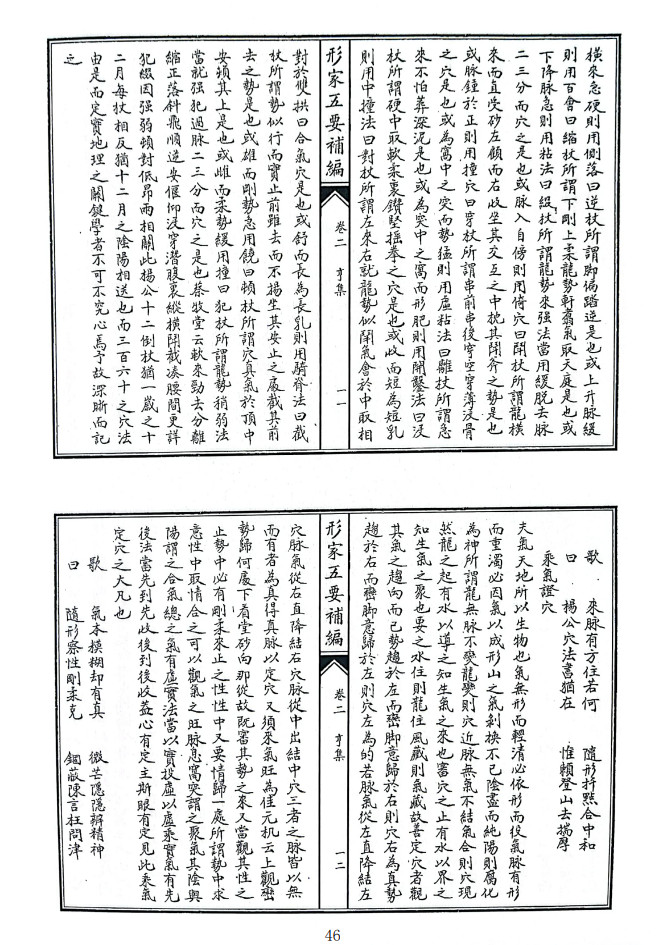 橫來急硬則用側落曰逆杖所謂脚偏踏逆是也或上升脉緩
則用百會曰縮杖所謂下剛上柔龍勢軒翥氣取天庭是也或
下降脉急則用粘法曰綴杖所謂龍勢來强法當用緩脫去脉
二三分而穴之是也或脉入自傍則用倚穴曰開杖所謂龍橫
來而直受砂左顧而右收坐其交互之中枕其開斧之勢是也
或脉鍾於正則用撞穴曰穿杖所謂串前串後穿空穿薄沒骨
之穴是也或為窩中之突而勢猛則用虛粘法曰離杖所謂急
來不怕葬深泥是也或為突中之窩而形肥則用開鑿法曰沒
杖所謂硬中取軟柔裏鑽堅搖拳之穴是也或收而短為短乳
則用中撞法曰對杖所謂左來右就龍勢似鬬氣會於中取相
形家五要補編 卷二 亨集 一一
對於雙拱曰合氣穴是也或舒而長為長乳則用騎脊法曰截
杖所謂勢似行而實止前雖去而不揚坐其安止之處截其前
去之勢是也或雄而剛勢急用饒曰頓杖所謂穴真氣於頂中
安頓其上是也或雌而柔勢緩用撞曰犯杖所謂龍勢稍弱法
當就强犯過脉二三分而穴之是也蔡牧堂云軟來勁去分離
縮正落斜飛順逆安偃仰沒穿潛腹裏縱橫開截湊腰間更詳
犯綴因强弱頓對低昂兩相關此楊公十二倒杖猶一歲之十
二月每杖相反猶十二月之陰陽相送也而三百六十之穴法
由是而定實地理之關鍵學者不可不究心焉予故深晰而記
之
歌 來脉有方住若何 隨形扦㸃合中和
曰 楊公穴法書猶在 惟賴登山去揣摩
乘氣證穴
夫氣天地所以生物也氣無形而輕清必依形而後氣脉有形
而重濁必因氣以成形山之氣剝換不已陰盡而純陽則腐化
為神所謂龍無脉不變龍變則穴近脉無氣不結氣合則穴現
然龍之起有水以導之知生氣之來也審穴之止有水以界之
知生氣之聚也要之水住則龍住風藏則氣藏故善定穴者觀
其氣之趨向而已勢趨於左而巒脚意歸於右則穴右為真勢
趨於右而巒脚意歸於左則穴左為的若脉氣從左直降結左
形家五要補編 卷二 亨集 一二
穴脉氣從右直降結右穴脉從中出結中穴三者之脉皆以無
而有者為真得真脉以定穴又須來氣旺為佳元机云上觀巒
勢歸何處下看堂砂向那從故既審其勢之來又當觀其性之
止勢中必有剛柔來止之性性中又要情歸一處所謂勢中求
意性中取情合之可以觀氣之旺脉息窩突謂之聚氣其陰與
陽謂之合氣總之氣有虛實法當以實投虛以虛乘實氣有先
後法當先到先收後到後收葢心有定主斯眼有定見此乘氣
定穴之大凡也
歌 氣本模糊却有真 微茫隱隱辨精神
曰 隨形察性剛柔克 錮蔽陳言枉問津
46